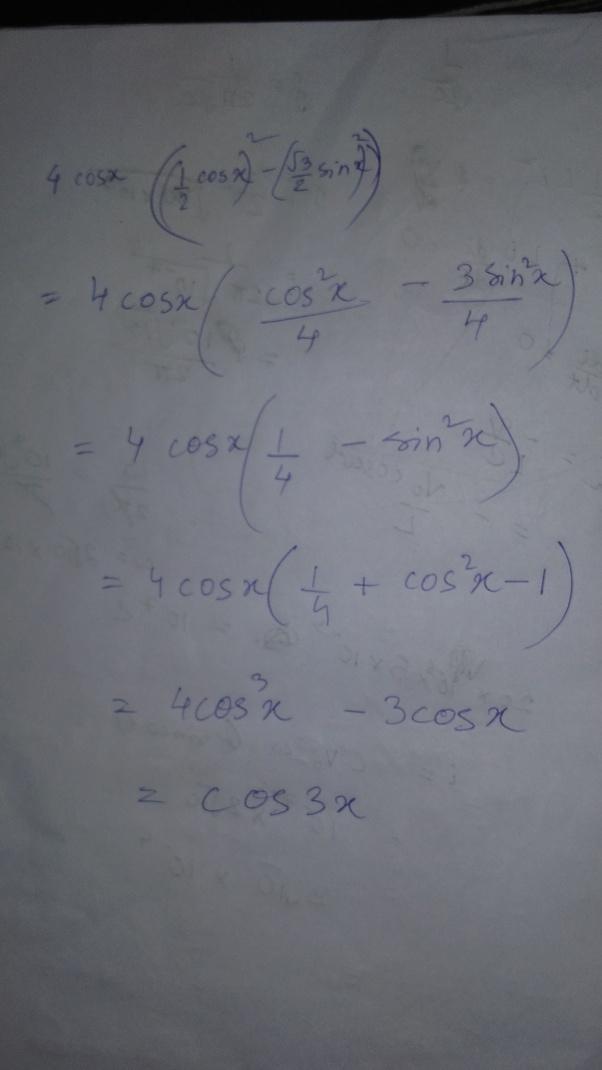 4 cosx ((1/2 cosx)² - (√3/2 sinx)²)
= 4 cosx (cos²x/4 - 3 sin²x/4)
= 4 cosx (1/4 - sin²x)
= 4 cosx (1/4 + cos²x - 1)
= 4cos³x - 3cosx
= cos3x